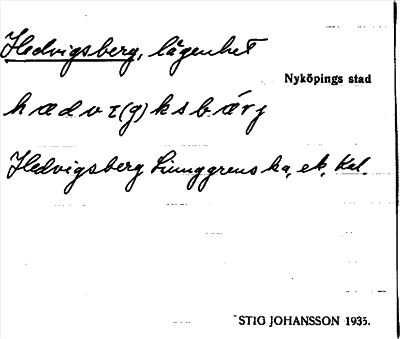 Hedvigsberg, lägenhet
Nyköpings stad
hædvɪ(g)ksbærj
Hedvigsberg Ljunggrenska, ek. kal.
STIG JOHANSSON 1935.